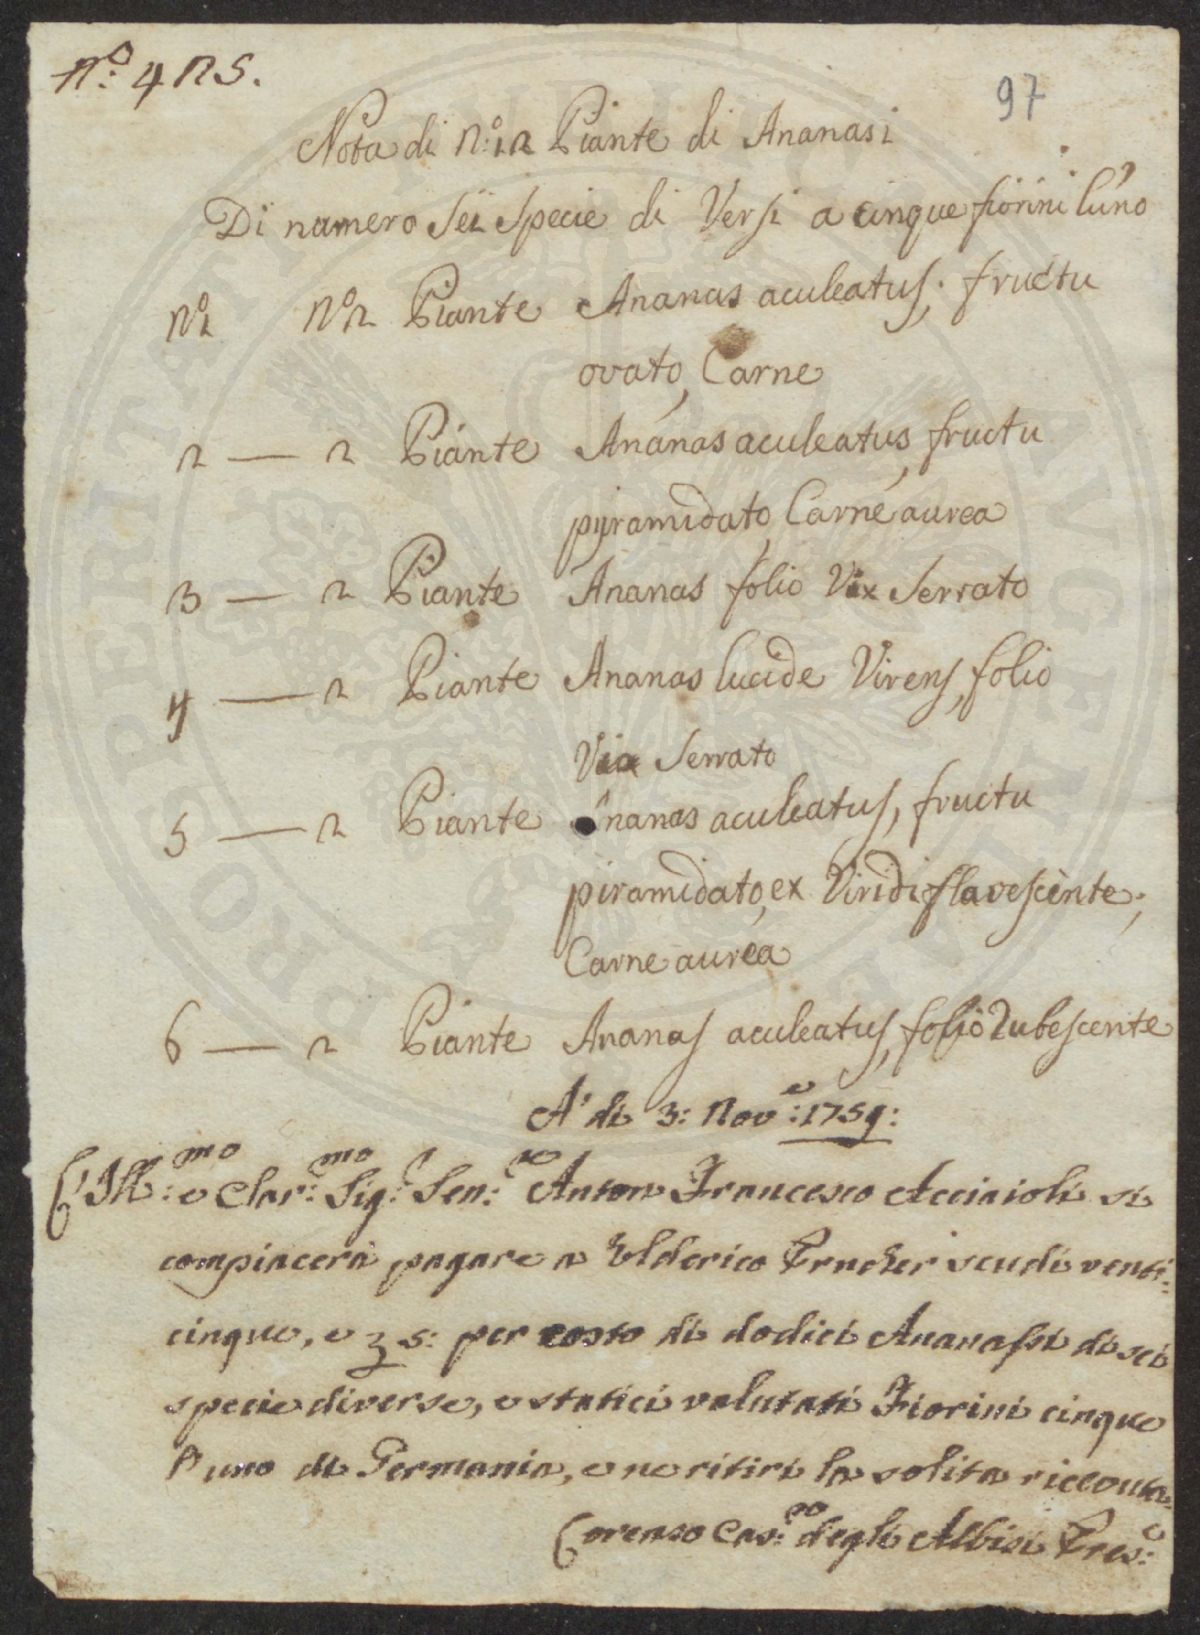 No: 4 25.
97
Nota di No: 12 Piante di Ananasi
Di numero Sei Specie di Versi a cinque fiorini luno
No 1 No 2 Piante Ananas aculeatus, fructu
ovato, Carne
2 — 2 Piante Ananas aculeatus, fructu
pyramidato, Carne aurea
3 — 2 Piante Ananas folio Vix Serrato
4 — 2 Piante Ananas lucide Virens, folio
Vix Serrato
5 — 2 Piante Ananas aculeatus, fructu
piramidato, ex Viridi flavescente,
Carne aurea
6 — 2 Piante Ananas aculeatus, folio Rubescente
A' di 3: Nov:e 1759:
L'Ill:mo e Clar:mo Sig:r Sen:re Anton Francesco Acciaioli si
compiacerà pagare a Elderico Prucker scudi venti-
cinque, e 3 5: per costo di dodici Ananassi di sei
specie diverse, e statici valutati Fiorini cinque
l'uno di Germania, e ne ritiri la solita riceuta
Lorenzo Cas:no degli Albizi Pres:e
PROSPERITATI PUBLICAE AUGENDAE